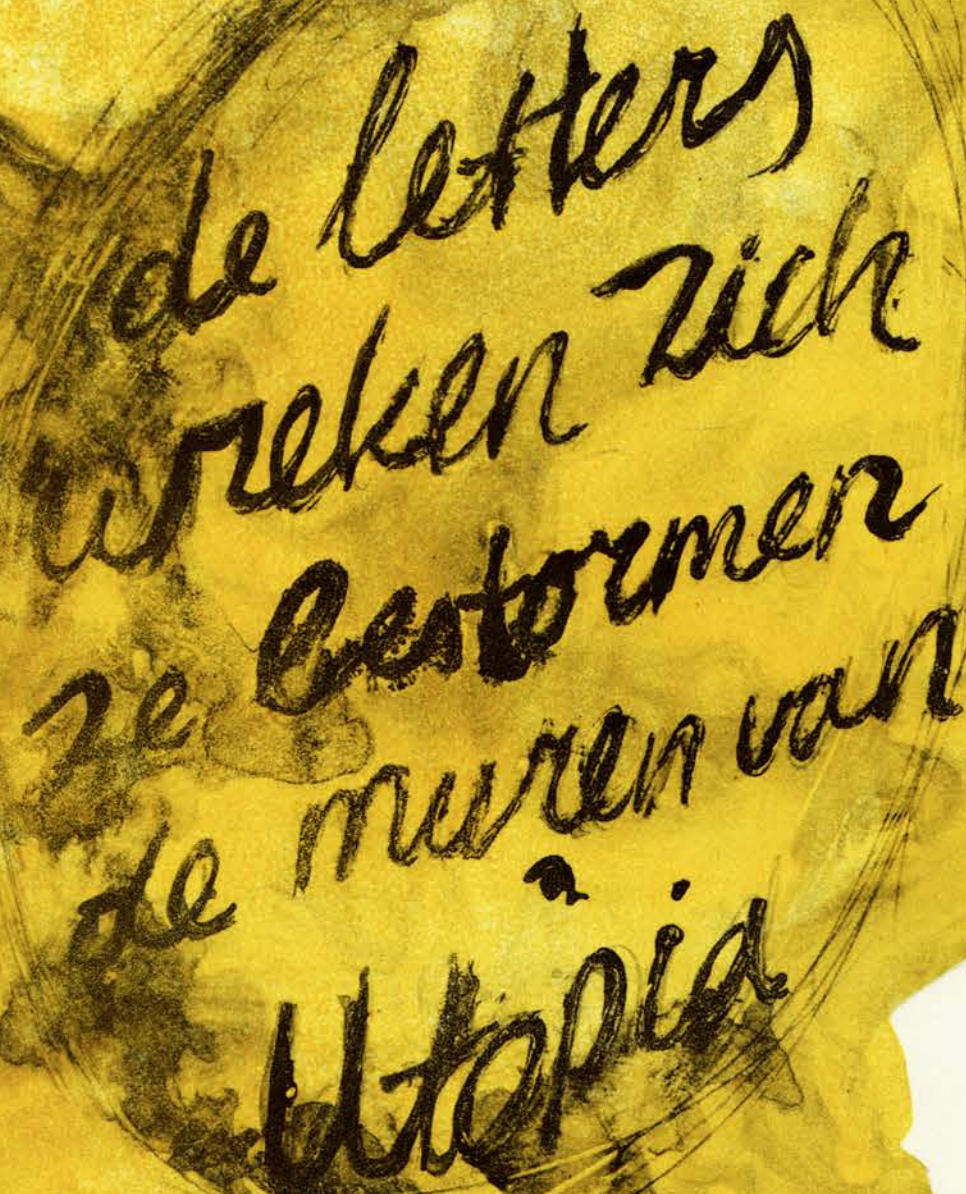 de letters
wreken zich
ze bestormen
de muren van
Utopia